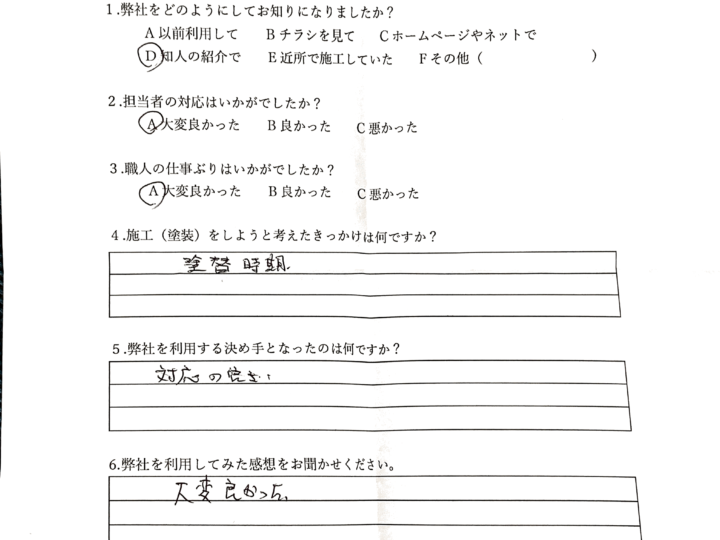 1.弊社をどのようにしてお知りになりましたか？
A 以前利用して　B チラシを見て　C ホームページやネットで
D 知人の紹介で　E 近所で施工していた　F その他（　）
2.担当者の対応はいかがでしたか？
A 大変良かった　B 良かった　C 悪かった
3.職人の仕事ぶりはいかがでしたか？
A 大変良かった　B 良かった　C 悪かった
4.施工（塗装）をしようと考えたきっかけは何ですか？
塗替時期.
5.弊社を利用する決め手となったのは何ですか？
対応の良さ
6.弊社を利用してみた感想をお聞かせください。
大変良かった